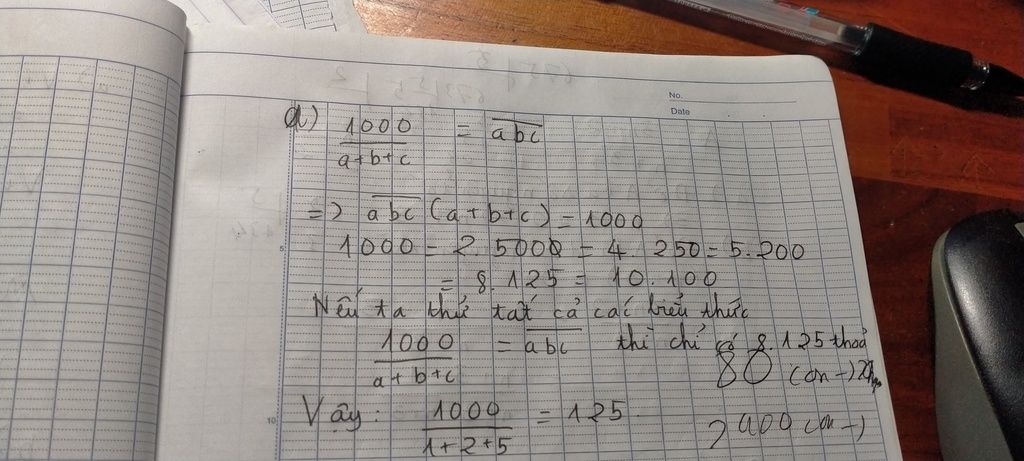 No.
Date
a) 1000/a+b+c = abc
=> abc (a+b+c) = 1000
1000 = 2. 5000 = 4. 250 = 5.200
= 8.125 = 10.100
Nếu ta thử tất cả các biểu thức
1000/a+b+c = abc thì chỉ có 8.125 thoả
80 (cm-)
Vậy: 1000/1+2+5 = 125
2400 (cm-)
5
10